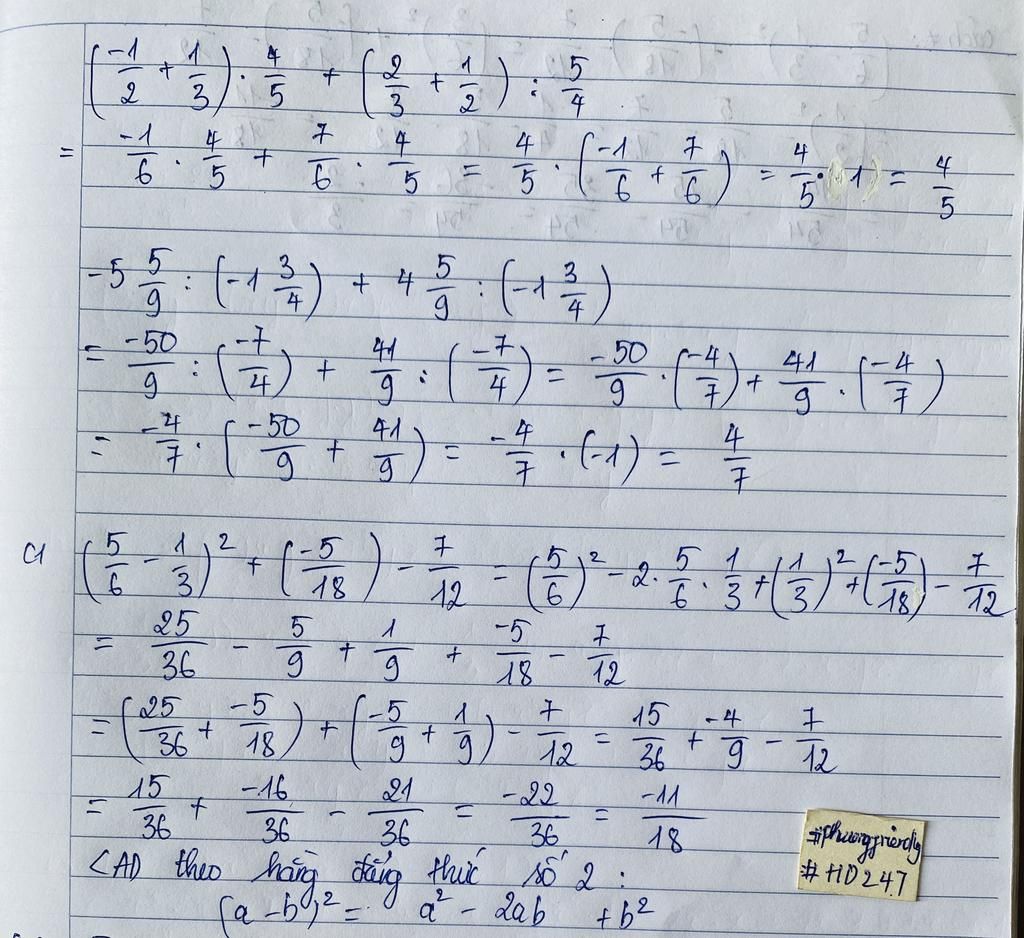 (-1/2 + 1/3) . 4/5 + (2/3 + 1/2) : 5/4
= -1/6 . 4/5 + 7/6 . 4/5 = 4/5 . (-1/6 + 7/6) = 4/5 . 1 = 4/5
-5 5/9 : (-1 3/4) + 4 5/9 : (-1 3/4)
= -50/9 : (-7/4) + 41/9 : (-7/4) = -50/9 . (-4/7) + 41/9 . (-4/7)
= -4/7 . (-50/9 + 41/9) = -4/7 . (-1) = 4/7
C1 (5/6 - 1/3)² + (-5/18) - 7/12 = (5/6)² - 2. 5/6 . 1/3 + (1/3)² + (-5/18) - 7/12
= 25/36 - 5/9 + 1/9 + -5/18 - 7/12
= (25/36 + -5/18) + (-5/9 + 1/9) - 7/12 = 15/36 + -4/9 - 7/12
= 15/36 + -16/36 - 21/36 = -22/36 = -11/18
<AD theo hằng đẳng thức số 2 :
(a - b)² = a² - 2ab + b²
#phuongfriendly
#HD247